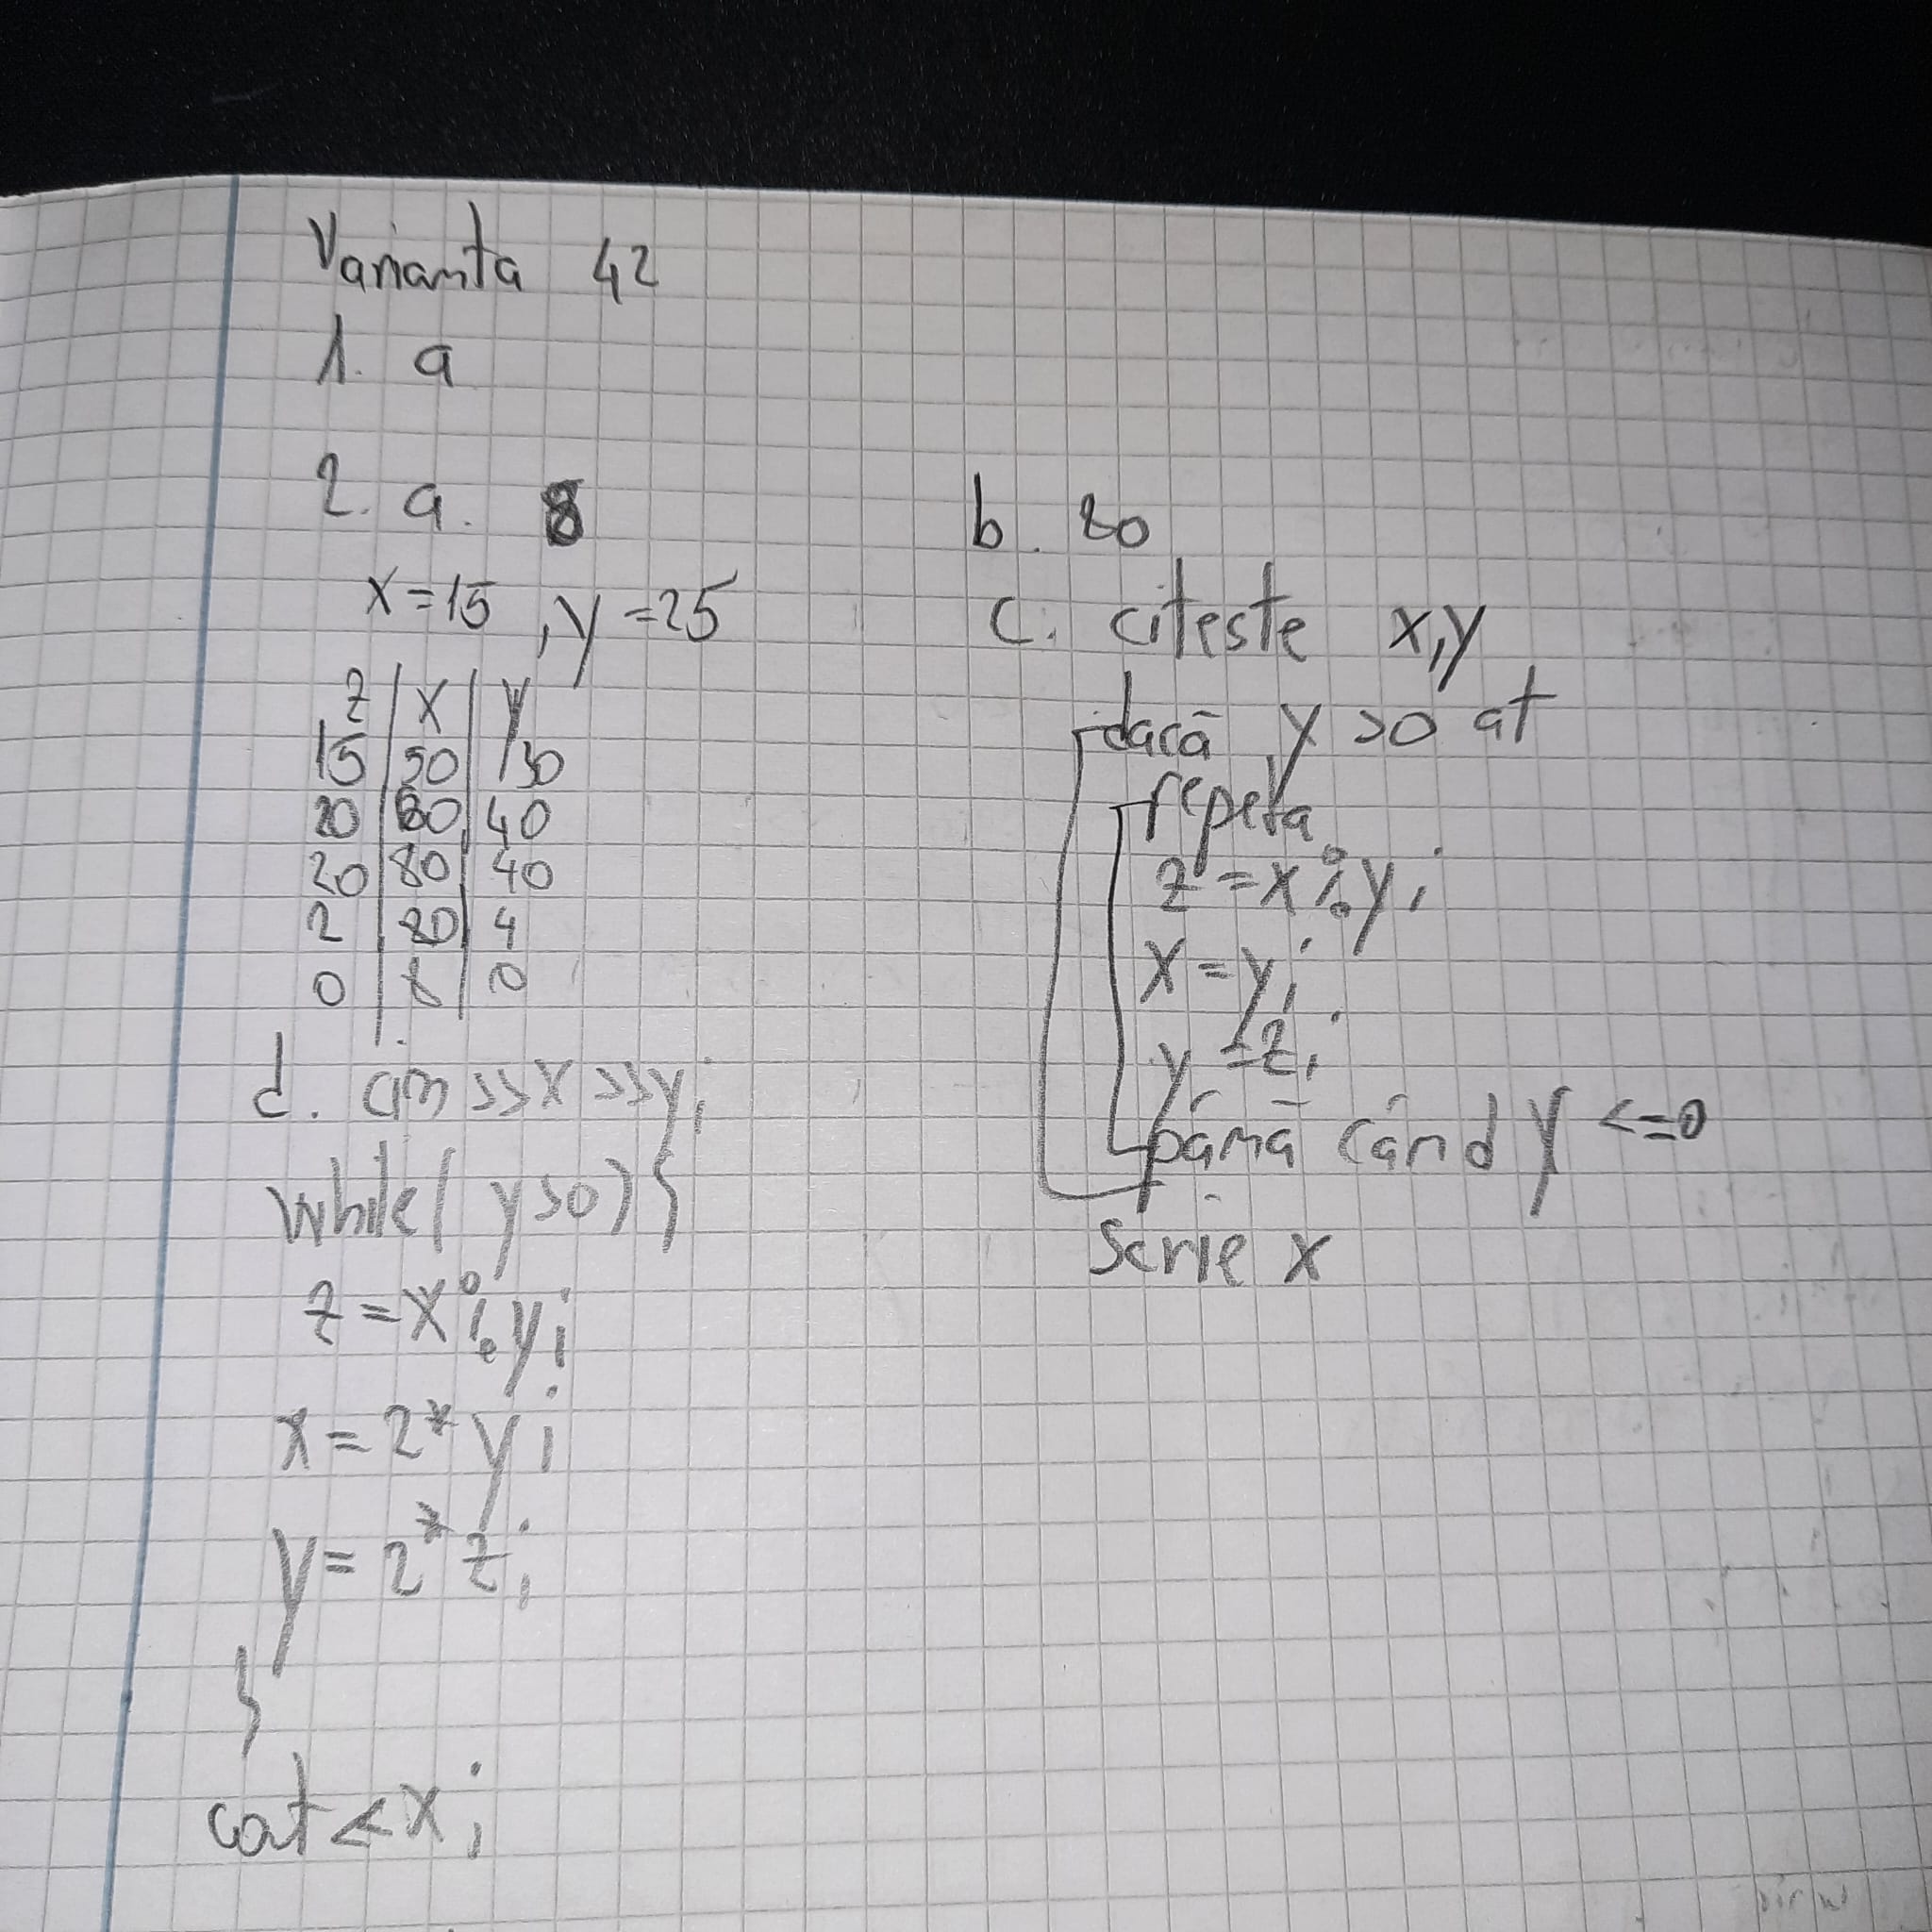 Varianta 42
1. a
2. a. 8
x=15, y=25
z | x | y
15 | 50 | 30
20 | 60 | 40
20 | 80 | 40
2 | 80 | 4
0 | 8 | 0
d. cin >>x >>y;
while( y>0) {
z = x % y;
x = 2* y;
y = 2* z;
}
cout << x;
b. 20
c. citeste x,y
dacă y >0 at
repeta
z = x % y;
x = y;
y = z;
până când y <=0
Scrie x